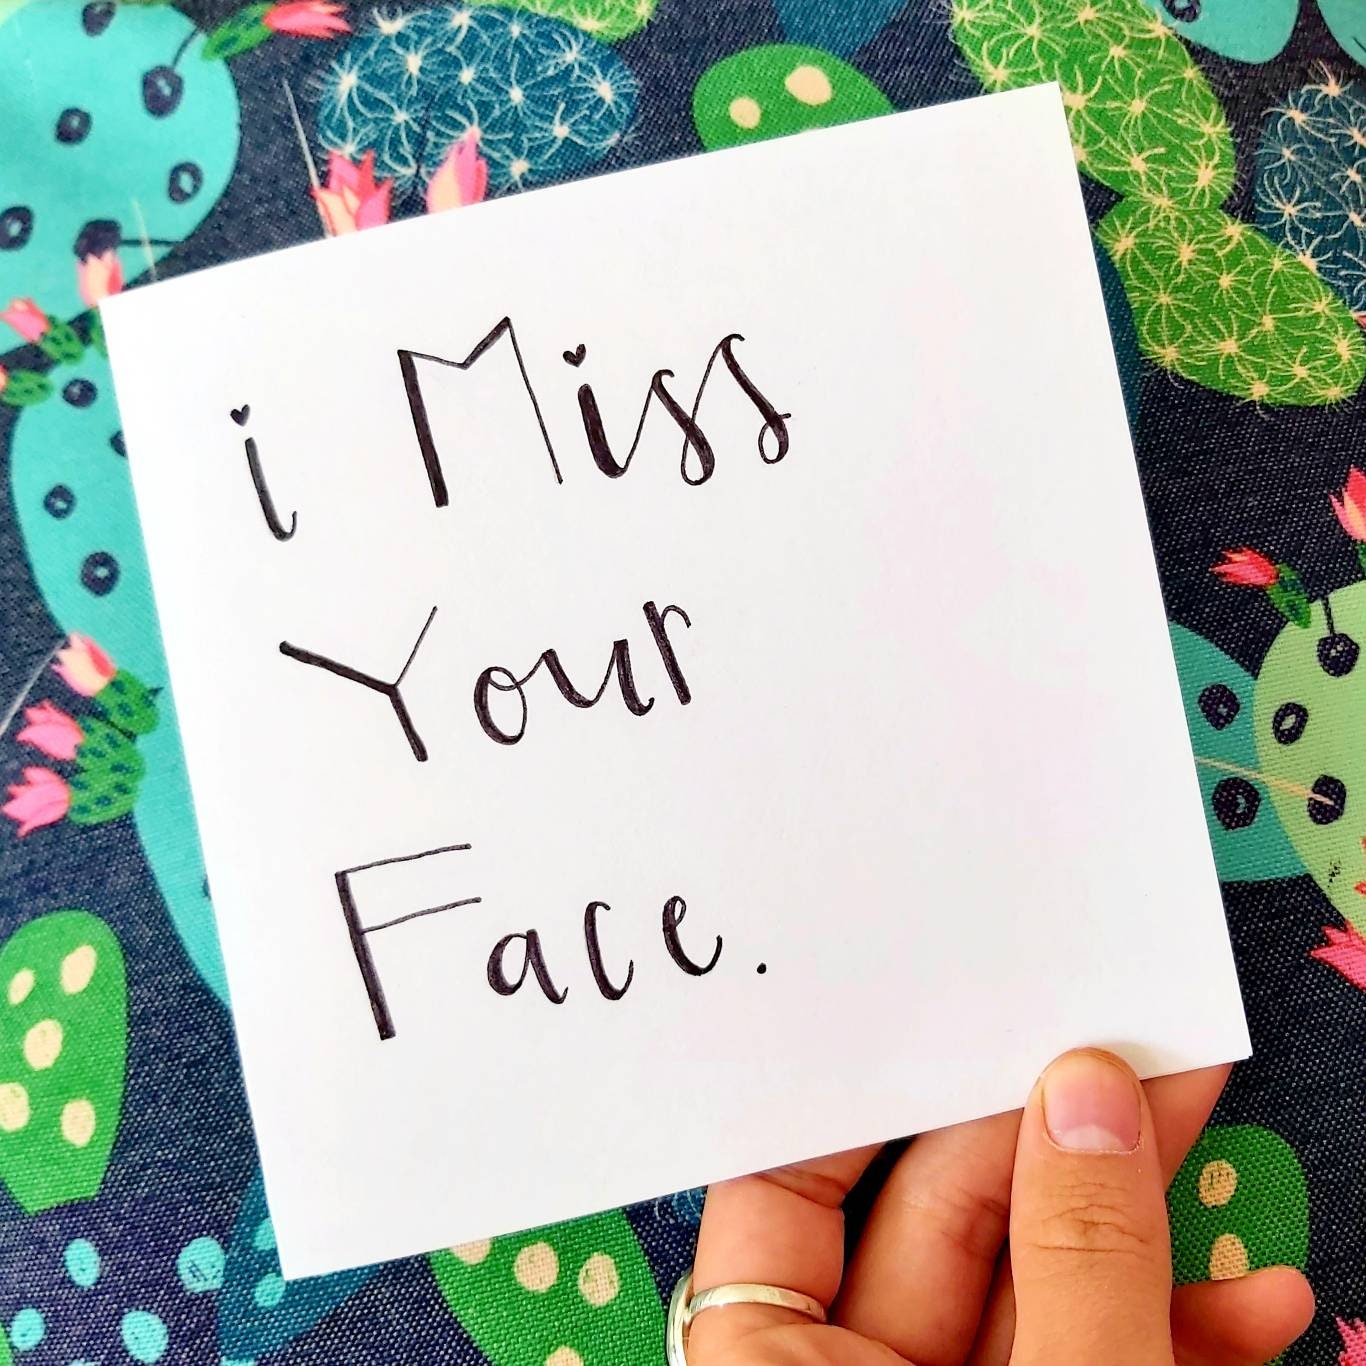 i Miss
Your
Face.